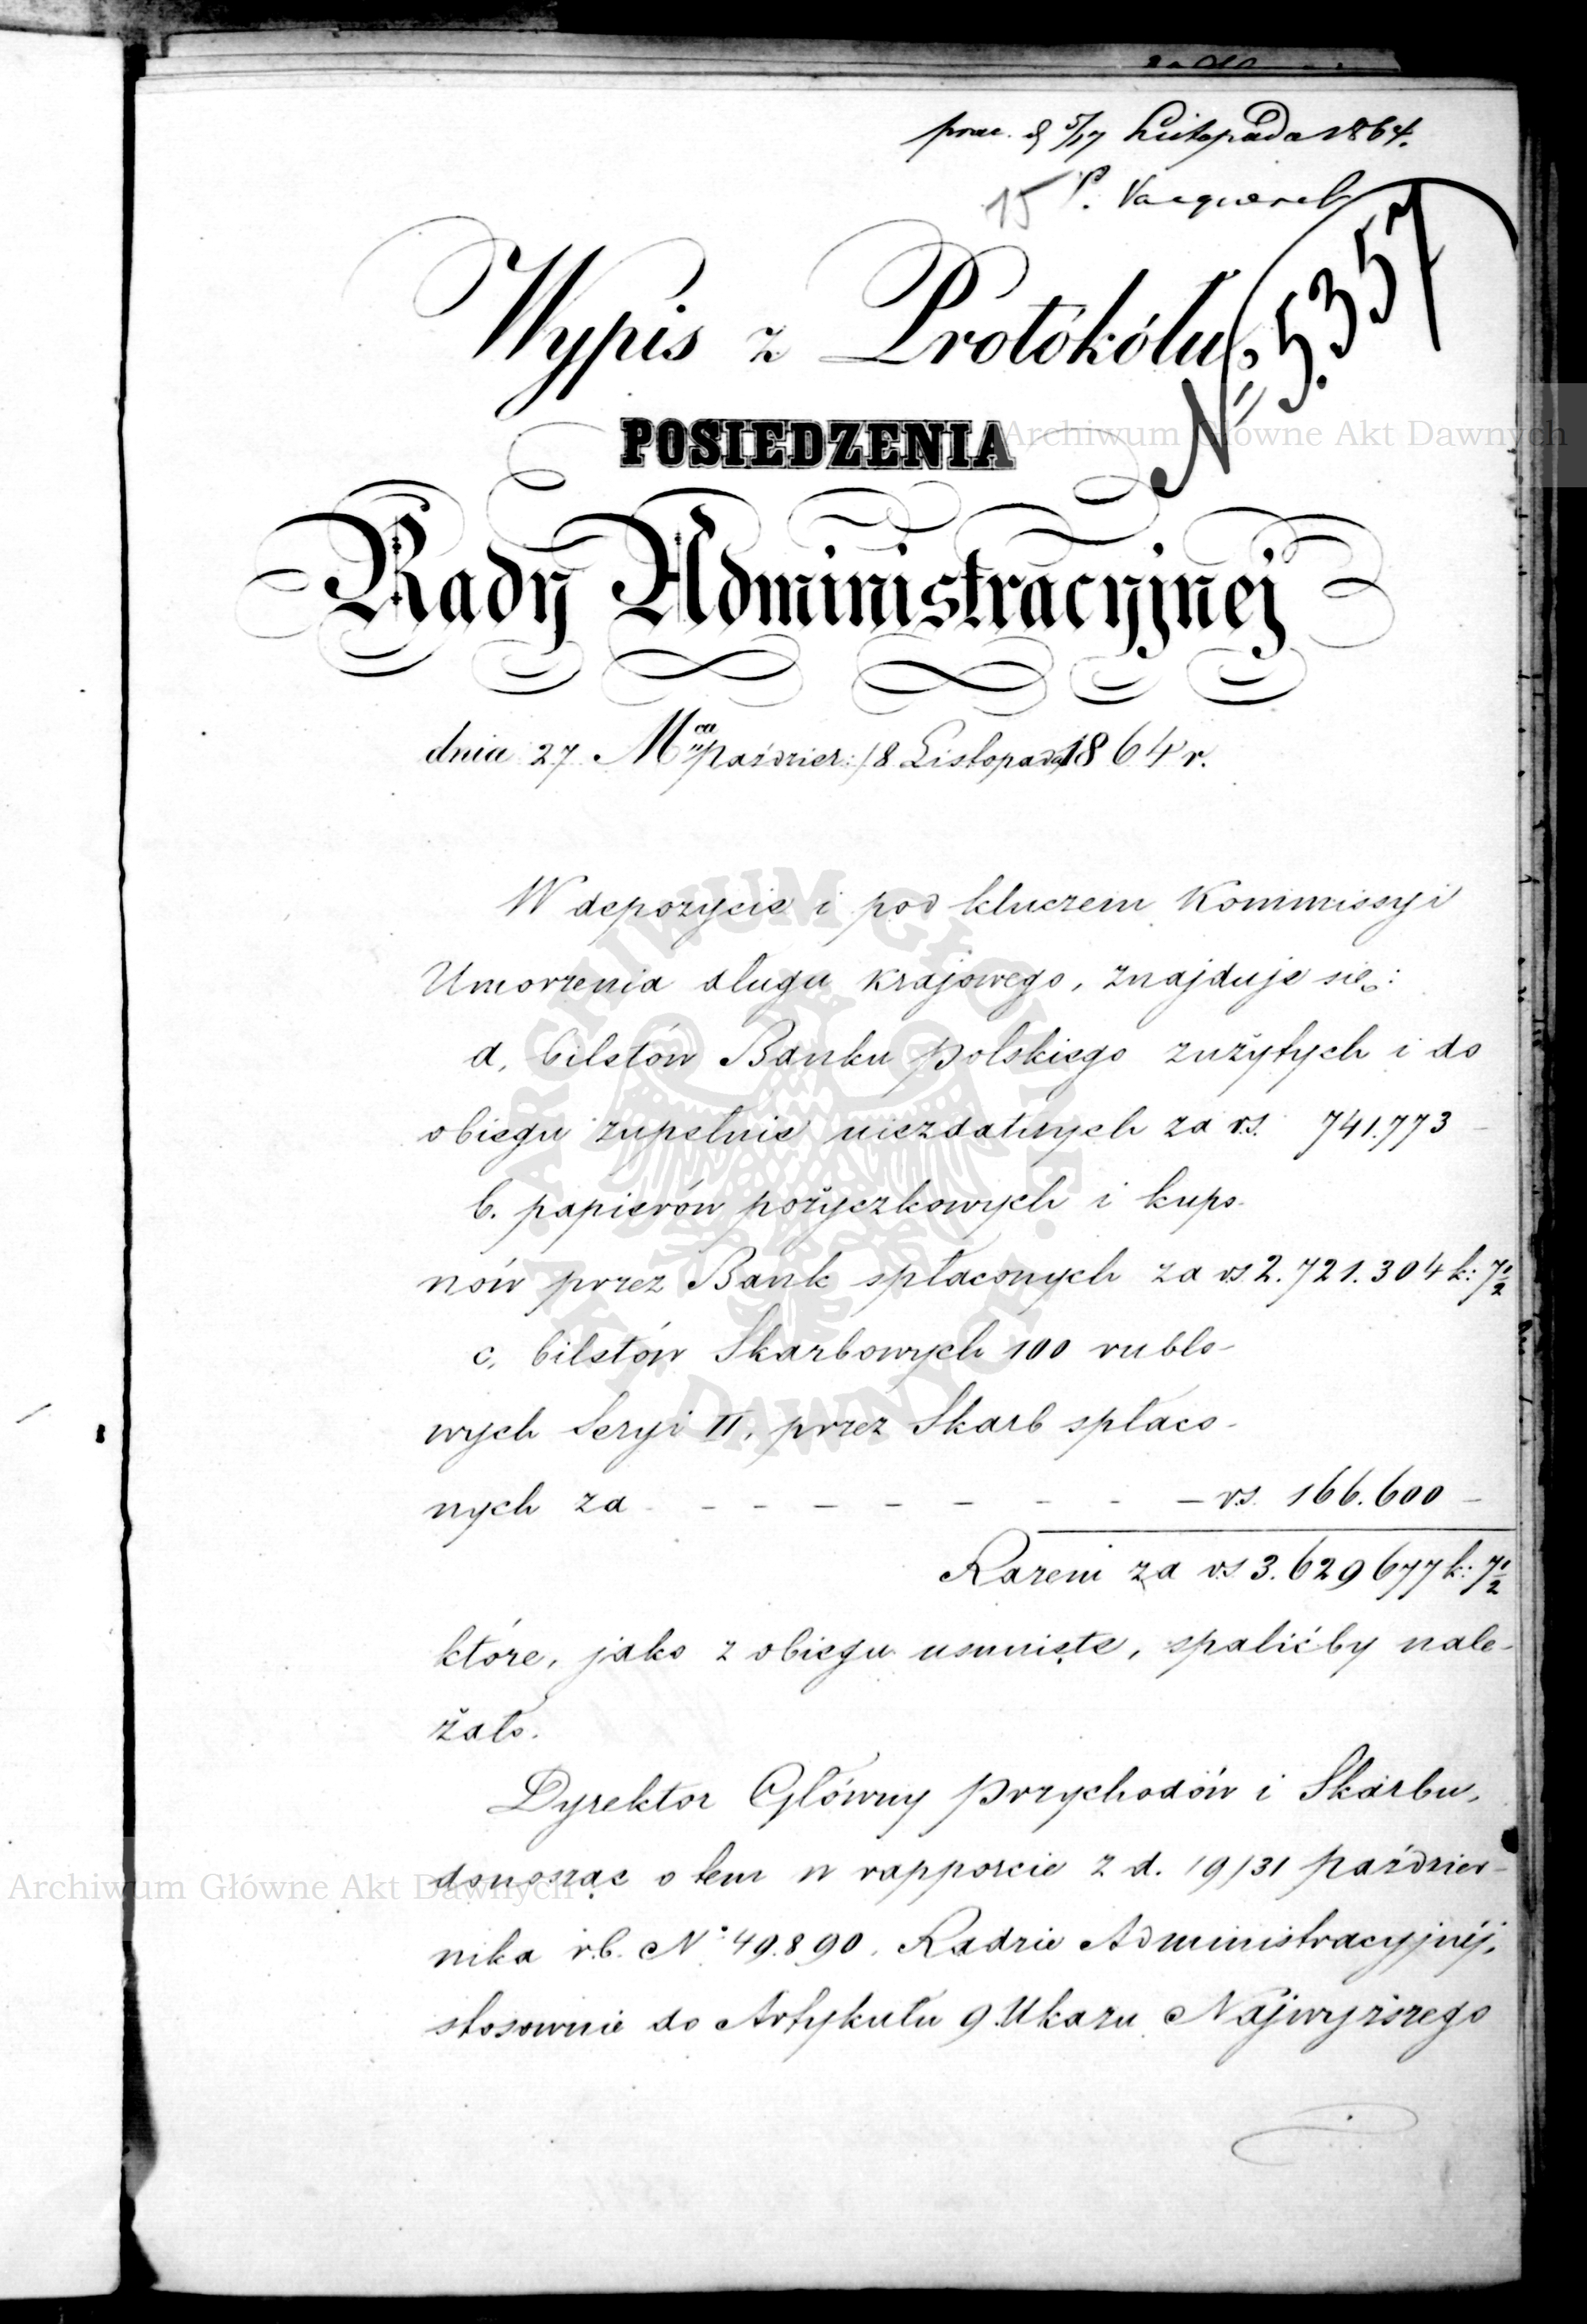 d 5/17 Listopada 1864.
15 P.
Nº 5.357
Wypis z Protokółu
POSIEDZENIA
Rady Administracyjnej
dnia 27 Mca Paździer:/8 Listopada 1864 r.
W depozycie i pod kluczem Kommissyi
Umorzenia długu krajowego, znajduje się:
a, biletów Banku Polskiego zużytych i do
obiegu zupełnie niezdatnych za rs. 741.773 -
b. papierów pożyczkowych i kupo-
nów przez Bank spłaconych za rs 2.721.304 k: 7½
c, biletów Skarbowych 100 rublo-
wych Seryi II, przez Skarb spłaco-
nych za - - - - - - - - - rs. 166.600 -
Razem za rs 3.629677 k: 7½
które, jako z obiegu usunięte, spalićby nale-
żało.
Dyrektor Główny Przychodów i Skarbu,
donosząc o tem w rapporcie z d. 19/31 Paździer-
nika r.b. Nº 49.890, Radzie Administracyjnéj,
stosownie do Artykułu 9 Ukazu Najwyższego
Archiwum Główne Akt Dawnych
ARCHIWUM GŁÓWNE AKT DAWNYCH
Archiwum Główne Akt Dawnych